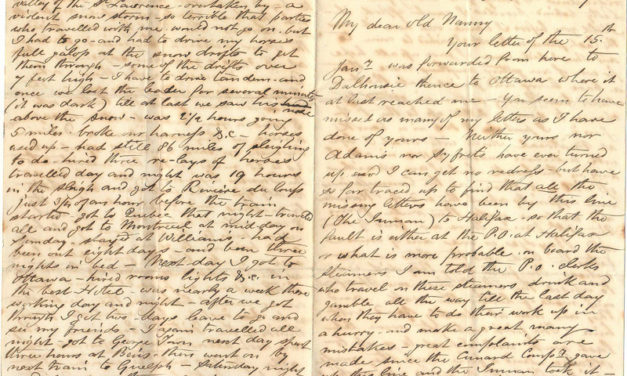 valley of the St Lawrence - overtaken by - a
violent snow storm - so terrible that parties
who travelled with me would not go on, but
I had to go and had to drive my horses
full gallop at the snow drifts to get
them through - some of the drifts over
7 feet high - I have to drive tandem and
once we lost the leader for several minutes
(it was dark) till at last we saw his
above the snow - was 2½ hours going
5 miles - broke harness &c - horses
used up - had still 86 miles of sleighing
to do - hired three re-lays of horses
travelled day and night was 19 hours
in the sleigh and got to Rivière du Loup
just ¼ of an hour before the train
started - got to Quebec that night - travelled
all and got to Montreal at midday on
Sunday. stayed at Williams - had
been out eight days and been three
nights in bed - Next day I got to
Ottawa - hired rooms lights &c. in
the best Hotel - was nearly a week there
working day and night - after we got
through I got two days leave to go and
see my friends - I again travelled all
night - got to George Town next day spent
three hours at - then went on by
next train to Guelph - Saturday night
My dear old Nanny
Your letter of the 15th
Jany was forwarded from here to
Dalhousie thence to Ottawa where it
at last reached me - You seem to have
missed as many of my letters as I have
done of yours - Neither yours nor
Adam's nor Syfrets have ever turned
up and I can get no redress - but have
so far traced up to find that all the
missing letters have been by this line
(The Inman) to Halifax, so that the
fault is either at the P.O. at Halifax
or what is more probable on board the
steamers I am told the P.O. clerks
who travel on these steamers, drink and
gamble all the way till the last day
when they have to do their work up in
a hurry - and make a great many
mistakes - great complaints are
made since the Cunard Compy gave
up this line and the Inman took it -